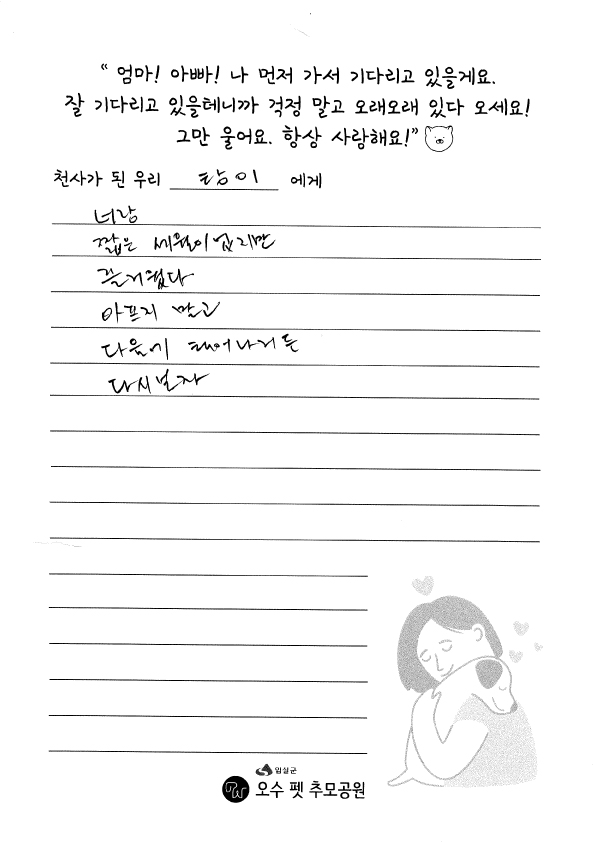 “ 엄마! 아빠! 나 먼저 가서 기다리고 있을게요.
잘 기다리고 있을테니까 걱정 말고 오래오래 있다 오세요!
그만 울어요. 항상 사랑해요!”
천사가 된 우리 탐이 에게
너랑
짧은 세월이었지만
즐거웠다
아프지 말고
다음에 태어나거든
다시보자
임실군
오수 펫 추모공원